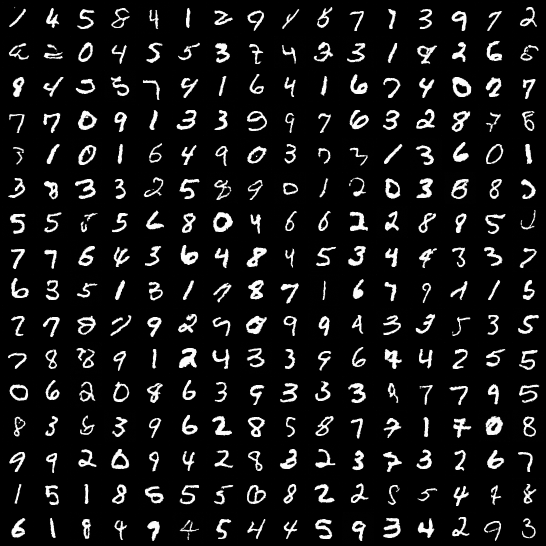 1 4 5 8 4 1 2 9 1 5 7 7 3 9 7 2
2 2 0 4 5 5 3 7 4 2 3 1 9 2 6 5
8 4 5 5 7 9 1 6 4 1 6 7 4 0 2 7
7 7 0 9 1 3 3 9 9 7 6 3 2 8 7 8
3 1 0 1 6 4 9 0 3 7 3 1 3 6 0 1
3 8 3 3 2 5 8 9 0 1 2 0 3 8 8 2
5 5 8 5 6 8 0 4 6 6 2 2 8 8 5
7 7 6 4 3 6 4 8 4 5 3 4 4 3 3 7
6 3 5 1 3 1 7 8 7 1 6 7 9 1 1 5
7 7 8 7 9 2 9 0 9 9 4 3 3 5 3 5
7 8 8 9 1 2 4 3 3 9 6 4 4 2 5 5
0 6 2 0 8 6 3 9 3 3 3 8 7 7 9 5
8 3 6 3 9 6 2 8 5 8 7 7 1 7 0 8
9 9 2 0 9 4 2 8 3 2 3 7 3 2 6 7
1 5 1 8 5 5 5 0 8 2 2 8 5 4 7 8
6 1 8 9 9 4 5 4 4 5 9 3 4 2 9 3